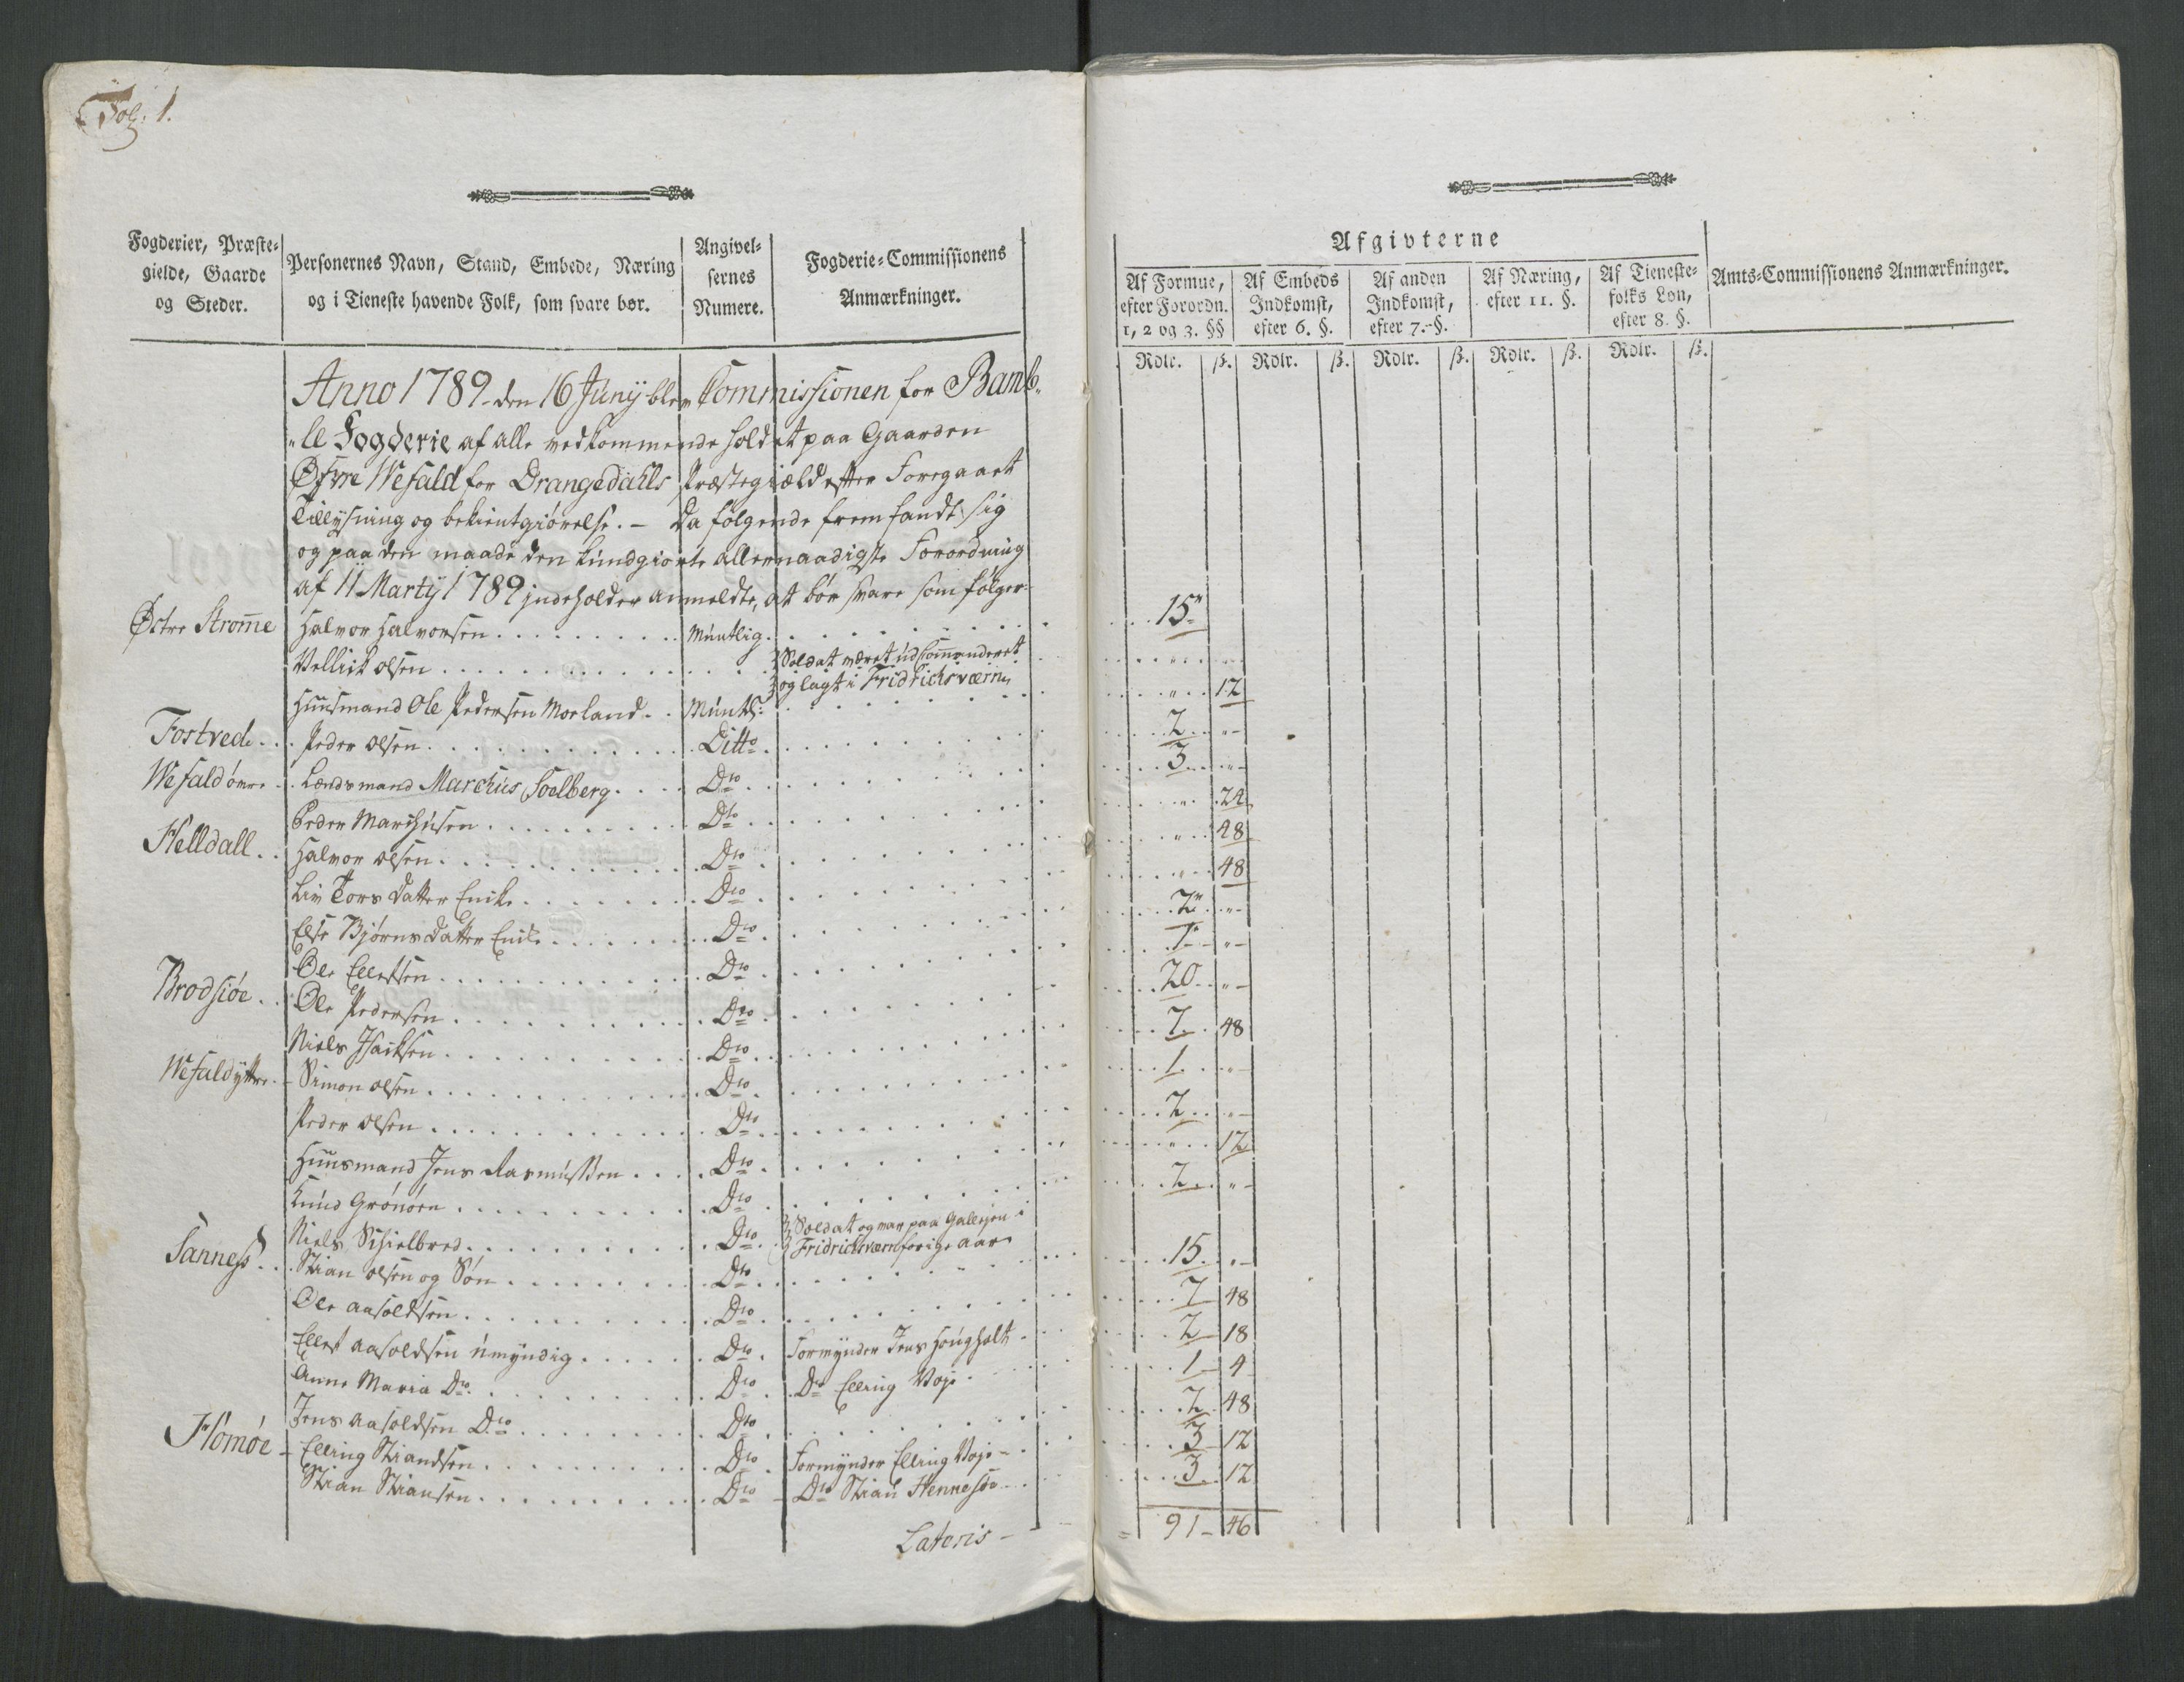 Fol: 1.
Fogderier, Præste-
gielde, Gaarde
og Steder.
Personernes Navn, Stand, Embede, Næring
og i Tieneste havende Folk, som svare bør.
Angivel-
sernes
Numere.
Fogderie-Commissionens
Anmærkninger.
Afgivterne
Af Formue,
efter Forordn.
1, 2 og 3. §§
Af Embeds
Indkomst,
efter 6. §.
Af anden
Indkomst,
efter 7. §.
Af Næring,
efter 11. §.
Af Tieneste-
folks Løn,
efter 8. §.
Amts-Commissionens Anmærkninger.
Rdlr. ß. Rdlr. ß. Rdlr. ß. Rdlr. ß. Rdlr. ß.
Anno 1789 - den 16 Junÿ blev Commissionen for Bamb-
le Fogderie af alle vedkommende holdet paa Gaarden
Øfvre Wefald for Drangedalls Præstegiæld efter Foregaaet
Tillysning og bekientgiørelse. - Da følgende frem fandt sig
og paa den maade den kundgiorte allernaadigste Forordning
af 11 Martÿ 1789 indeholder anmeldte, at bør svare som følger-
Østre Strome Halvor Halvorsen Muntlig 15
Vellik olsen Soldat været udCommanderet
og lagt i Fridrichsværn
Huusmand Ole Pedersen Moeland Muntl: 12
Fostved Peder olsen Ditto 2
Wefald øvre Lændsmand Marchus Soelberg Dto 3
Peder Marchusen Dto 24
Helldall Halvor olsen Dto 48
Liv Tors datter Enike Dto 48
Else Bjørns datter Enike Dto 2
Ole Ellefsen Dto 1
Brodsiøe Ole Pedersen Dto 20
Niels Isaksen Dto 7 48
Wefald ytre Simon olsen Dto 1
Peder olsen Dto 2
Huusmand Jens Rasmussen Dto 12
Knud Grønøen Dto 2
Niels Dto Soldat og var paa Galleyen i
Fridrichsværn forige aar
Sanness Stian olsen og Søn Dto 15
Ole aasoldsen Dto 7 48
Ellef aasoldsen umyndig Dto Formynder Jens Hougholt 2 18
Anne Maria Dto Dto Dto Elling Voje 1 4
Jens aasoldsen Dto Dto 2 48
Homøe Elling Stiandsen Dto Formynder Elling Voje 3 12
Stian Stiansen Dto Dto Stian Hennesøe 3 12
Lateris - 91 - 46